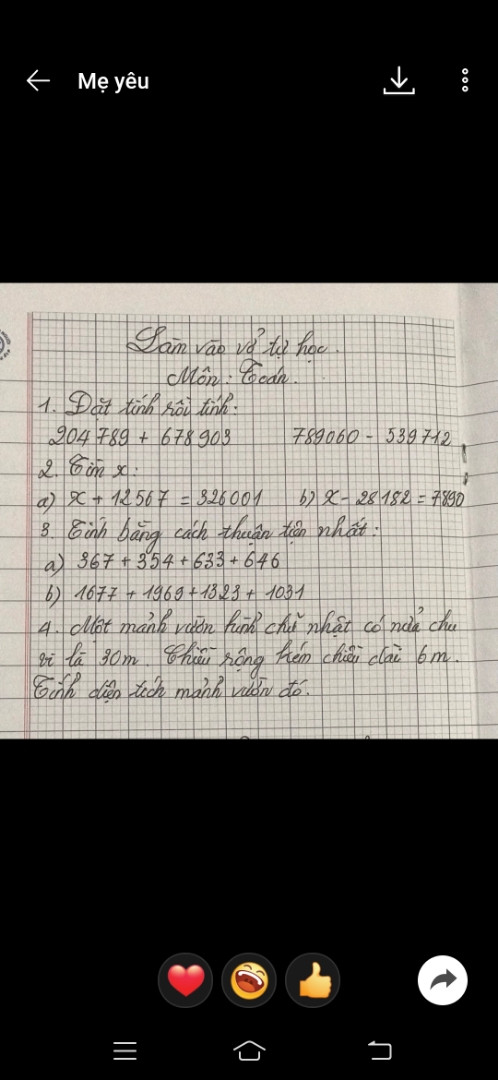 Mẹ yêu
Làm vào vở tự học.
Môn: Toán.
1. Đặt tính rồi tính:
204789 + 678903 789060 - 539712
2. Tìm x:
a) x + 12567 = 326001 b) x - 28182 = 7890
3. Tính bằng cách thuận tiện nhất:
a) 367 + 354 + 633 + 646
b) 1677 + 1969 + 1323 + 1031
4. Một mảnh vườn hình chữ nhật có nửa chu
vi là 30m. Chiều rộng kém chiều dài 6m.
Tính diện tích mảnh vườn đó.